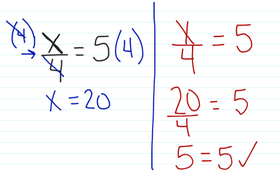 (x4) → x/4 = 5 (4)
x = 20
x/4 = 5
20/4 = 5
5 = 5 ✓